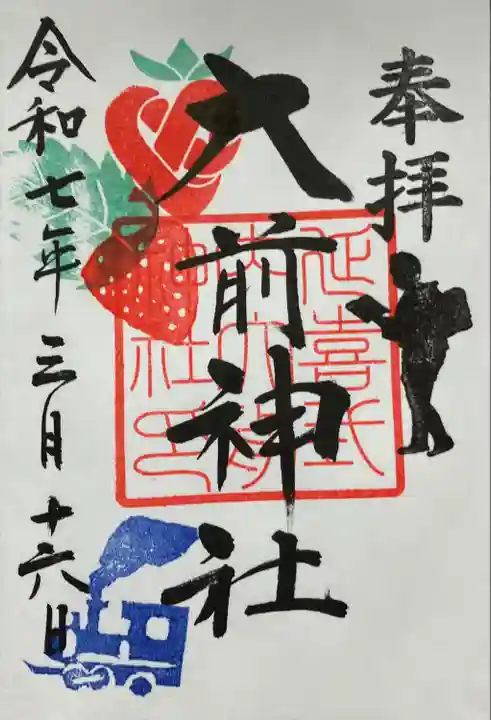 奉拝
大前神社
延喜式内大前神社印
令和七年三月十六日